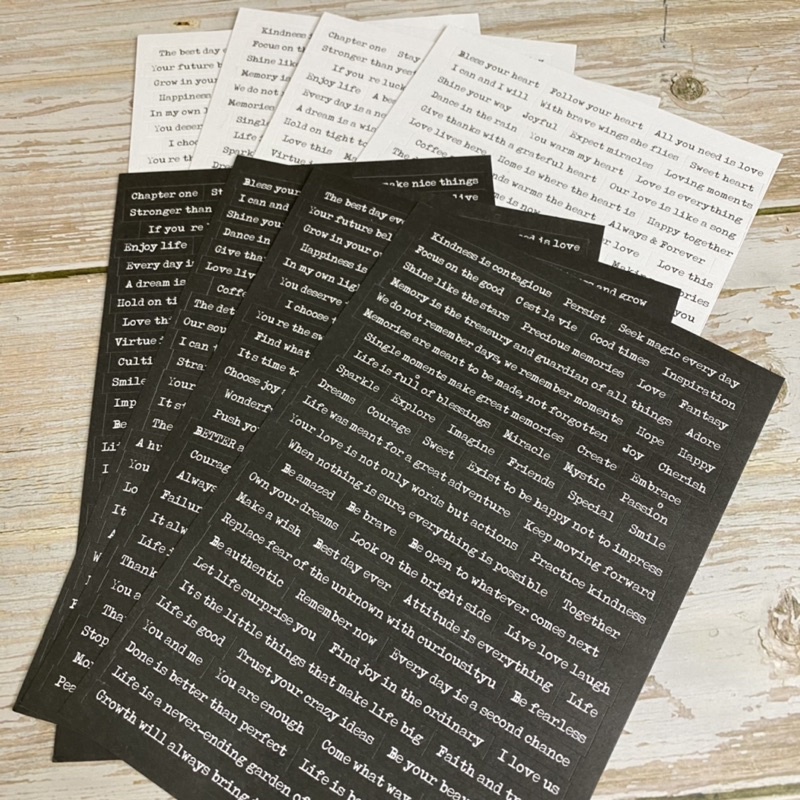 The best day
Your future b
Grow in your
Happiness
In my own l
You deser
I choo
You're th
Kindness i
Focus on th
Shine like
Memory is
We do not
Memories
Single
Life
Spark
Chapter one Stay
Stronger than yes
If you re luck
Enjoy life A be
Every day is a ne
A dream is a wis
Hold on tight to
Love this Ma
Virtue i
Bless your heart Follow your heart All you need is love
I can and I will With brave wings she flies Sweet heart
Shine your way Joyful Expect miracles Loving moments
Dance in the rain You warm my heart Love is everything
Give thanks with a grateful heart Our love is like a song
Love lives here Home is where the heart is Happy together
Coffee nds warms the heart Always & Forever
me is now our love Love this
Maki ories
you
Chapter one St
Stronger than
If you re
Enjoy life
Every day i
A dream is
Hold on ti
Love thi
Virtue i
Culti
Smile
Imp
Be
Li
I
Bless your
I can and
Shine your
Dance in
Give than
Love liv
Coff
The det
Our sou
I can t
Stra
Your
It s
The
A hu
You
Lo
It
An
W
make nice things
live
The best day eve
Your future bel
Grow in your o
Happiness is
In my own lig
You deserve
I choose
You re the sw
Find what
It's time to
Choose joy
Wonderf
Push you
BETTER a
Courag
Always
Failur
It alw
Life i
Thank
You a
Tha
Stop
Mo
Pea
ed in love
and grow
Kindness is contagious Persist Seek magic every day
Focus on the good C'est la vie Good times Inspiration
Shine like the stars Precious memories Love Fantasy
Memory is the treasury and guardian of all things Adore
We do not remember days, we remember moments Hope Happy
Memories are meant to be made, not forgotten Joy Cherish
Single moments make great memories Create Embrace
Life is full of blessings Miracle Mystic Passion
Sparkle Explore Imagine Friends Special Smile
Dreams Courage Sweet Exist to be happy not to impress
Life was meant for a great adventure Keep moving forward
Your love is not only words but actions Practice kindness
When nothing is sure, everything is possible Together
Own your dreams Be amazed Be brave Be open to whatever comes next
Make a wish Best day ever Look on the bright side Live love laugh
Replace fear of the unknown with curiousityu Attitude is everything Life
Be authentic Remember now Every day is a second chance Be fearless
Let life surprise you Find joy in the ordinary I love us
It's the little things that make life big Faith and tr
Life is good Trust your crazy ideas Be your beau
You and me You are enough Come what way
Done is better than perfect Life is be
Life is a never-ending garden of
Growth will always bring